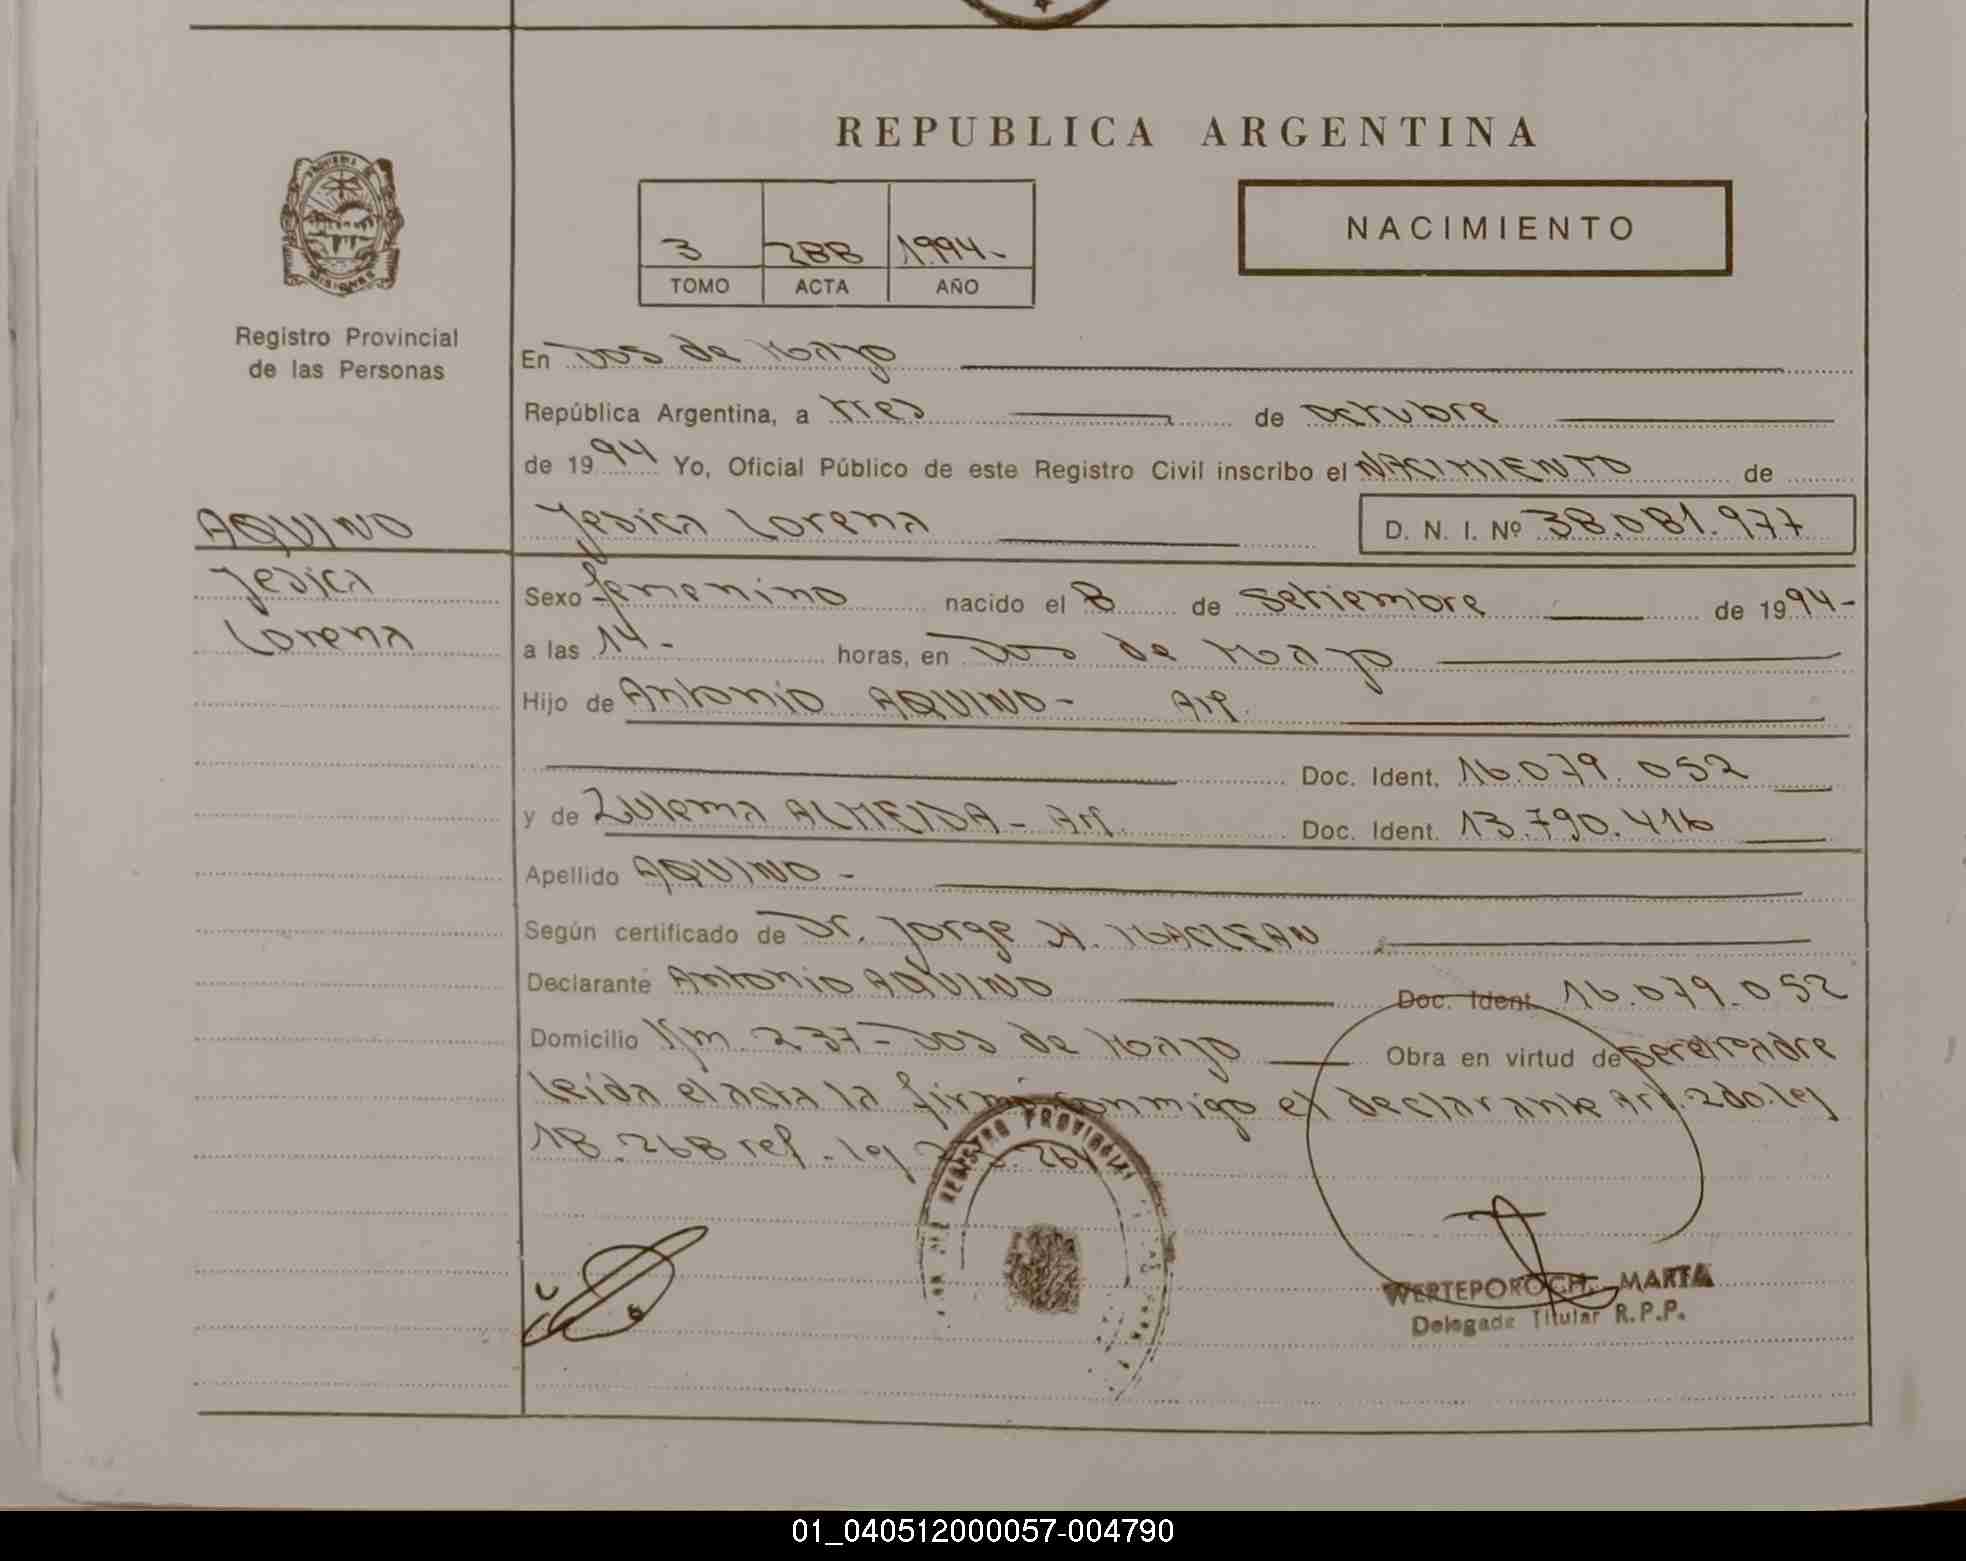 REPUBLICA ARGENTINA
NACIMIENTO
3 288 1994-
TOMO ACTA AÑO
Registro Provincial
de las Personas
En Dos de Mayo
República Argentina, a tres de octubre
de 1994 Yo, Oficial Público de este Registro Civil inscribo el NACIMIENTO de
AQUINO
Jesica Lorena D. N. I. Nº 38.081.977
Jesica
Lorena
Sexo femenino nacido el 8 de setiembre de 1994-
a las 14- horas, en Dos de Mayo
Hijo de Antonio AQUINO- Arg.
Doc. Ident. 16.079.052
y de Zulema ALMEIDA- Arg. Doc. Ident. 13.790.416
Apellido AQUINO-
Según certificado de Dr. Jorge A. MACLEAN
Declarante Antonio AQUINO Doc. Ident. 16.079.052
Domicilio Km. 237- Dos de Mayo Obra en virtud de ser el padre
leida el acta la firma conmigo el declarante Art. 2do. ley
18.268 ref. ley
REGISTRO PROVINCIAL
WERTEPOROCH, MARTA
Delegada Titular R.P.P.
01_040512000057-004790